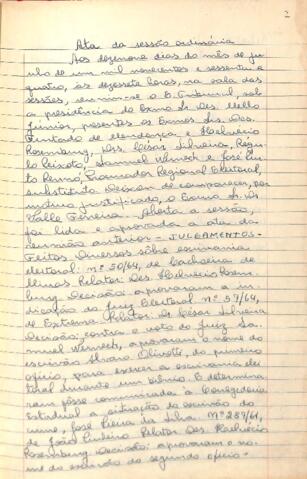 2
Ata da sessão ordinária
Aos dezenove dias do mês de ju-
nho de um mil novecentos e sessenta e
quatro, às dezessete horas, na sala das
sessões, reuniu-se o E. Tribunal, sob
a presidência do Exmo Sr. Des. Mello
Júnior, presentes os Exmos Srs. Des.
Furtado de Mendonça e Helvécio
Rosenburg, Drs. César Silveira, Régu-
lo Peixoto, Samuel Werneck e José
Procurador Regional Eleitoral,
substituto. Deixou de comparecer, por
motivo justificado, o Exmo Sr. Dr.
Valle Ferreira. Aberta a sessão,
foi lida e aprovada a ata da
reunião anterior - JULGAMENTOS -
Feitos diversos sôbre escrivania
eleitoral: nº 50/64, de Cachoeira de
Minas. Relator: Des. Helvécio Rosen-
burg. Decisão: aprovaram a in-
dicação do Juiz Eleitoral. Nº 57/64,
de Extrema. Relator: Dr. César Silveira.
Decisão: contra o voto do Juiz Sa-
muel Werneck, aprovaram o nome do
escrivão Álvaro Olivotti, do primeiro
ofício, para exercer a escrivania elei-
toral durante um biênio. E determina-
ram fôsse comunicada à Corregedoria
Estadual a situação do escrivão do
crime, José Vieira da Silva. Nº 289/61,
de João Pinheiro. Relator: Des. Helvécio
Rosenburg. Decisão: aprovaram o no-
me do escrivão do segundo ofício -